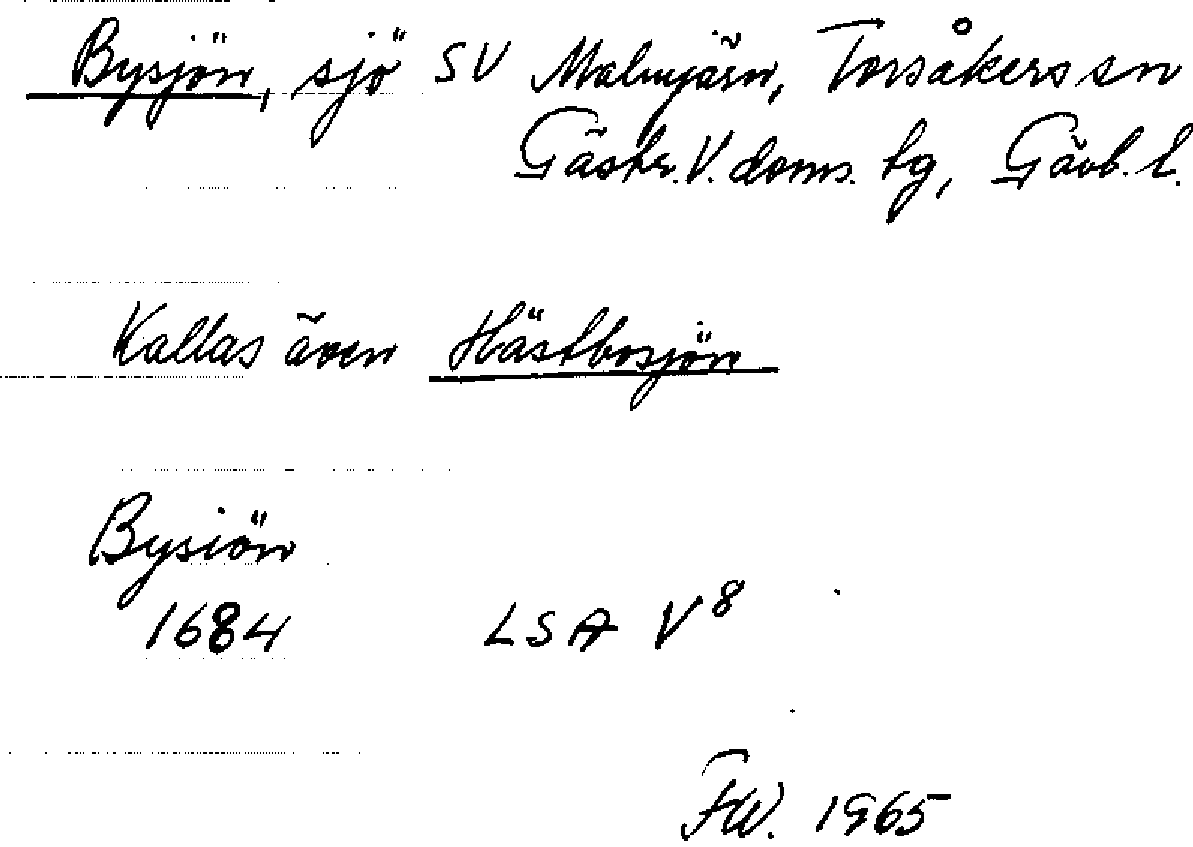 Bysjön, sjö SV Malmjärn, Torsåkers sn
Gästr. V. doms. tg, Gävb. l.
Kallas även Hästbosjön
Bysiön
1684 LSA V⁸
FW. 1965